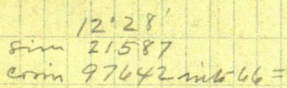 12°28'
sin 21587
cosin 97642 into 66 =